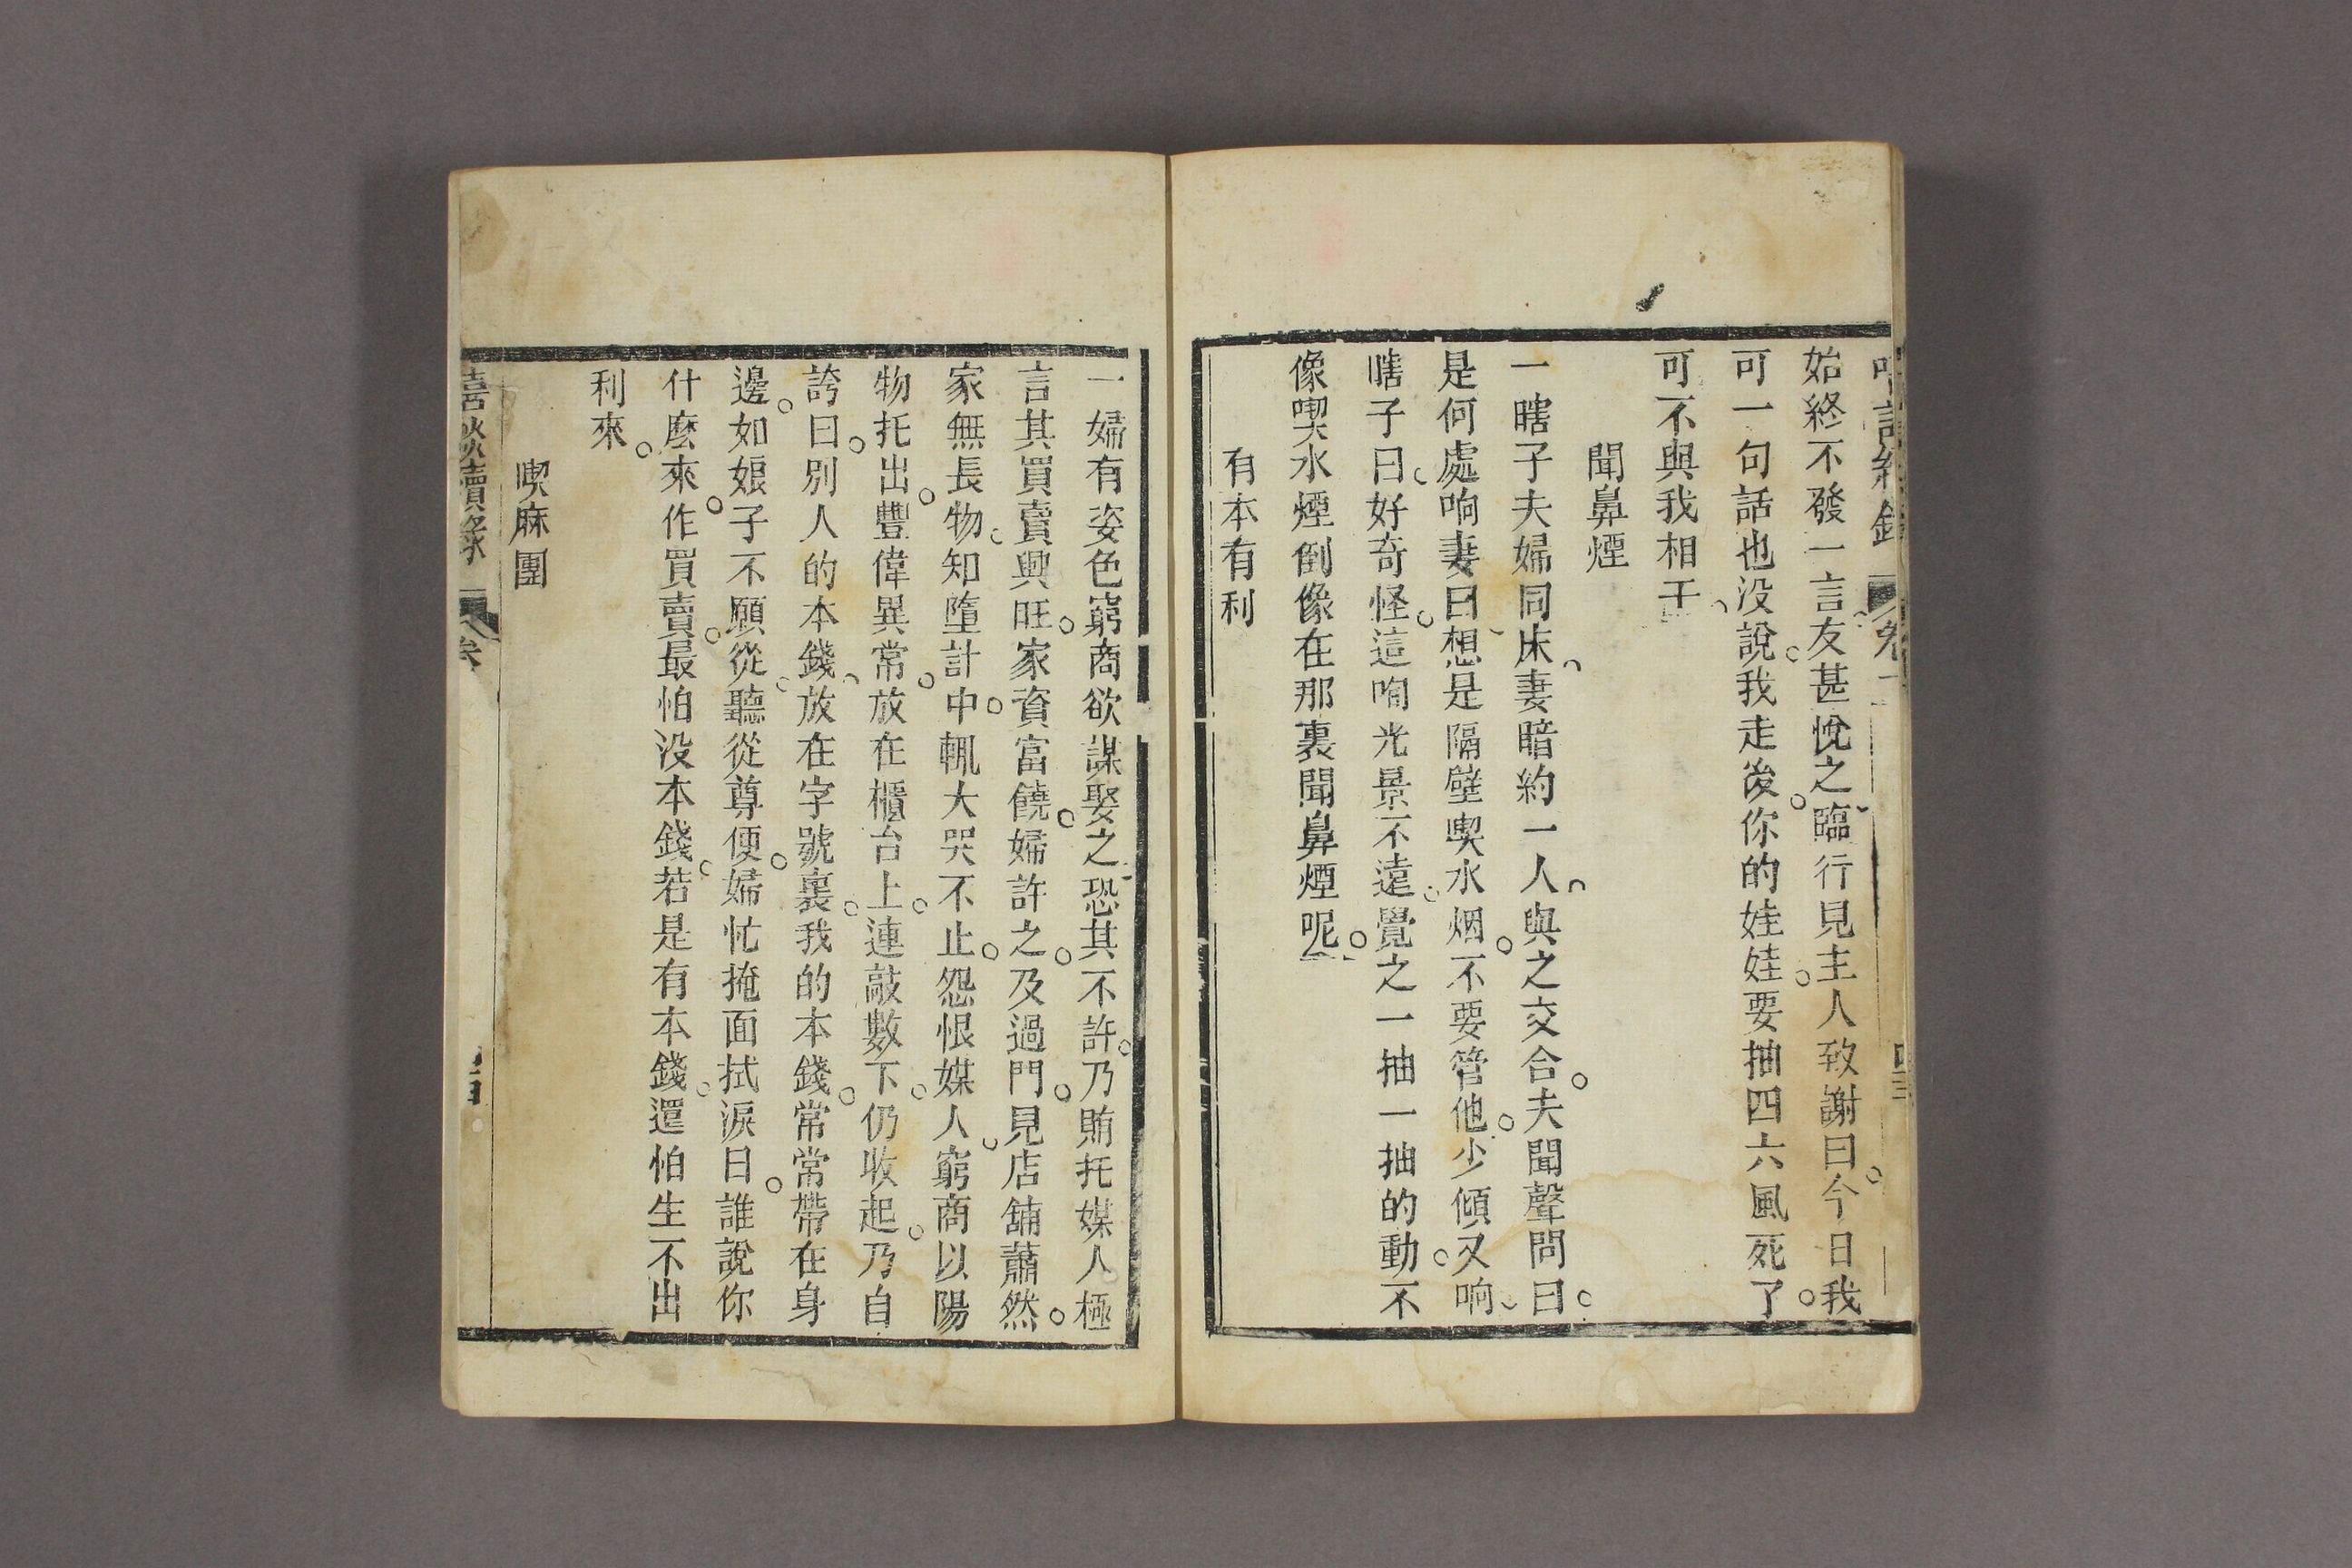 始終不發一言友甚悅之臨行見主人致謝曰今日我
可一句話也没說我走後你的娃娃要抽四六風死了
可不與我相干
聞鼻煙
一瞎子夫婦同床妻暗約一人與之交合夫聞聲問曰
是何處响妻曰想是隔壁喫水烟不要管他少傾又响
瞎子曰好奇怪這㗂光景不遠覺之一抽一抽的動不
像喫水煙倒像在那裏聞鼻煙呢
有本有利
一婦有姿色窮商欲謀娶之恐其不許乃賄托媒人極
言其買賣興旺家資富饒婦許之及過門見店舖蕭然
家無長物知墮計中輒大哭不止怨恨媒人窮商以陽
物托出豐偉異常放在櫃台上連敲數下仍收起乃自
誇曰别人的本錢放在字號裏我的本錢常常帶在身
邊如娘子不願從聽從尊便婦忙掩面拭淚日誰說你
什麽來作買賣最怕没本錢若是有本錢還怕生不出
利來
喫麻團
嘻談續錄